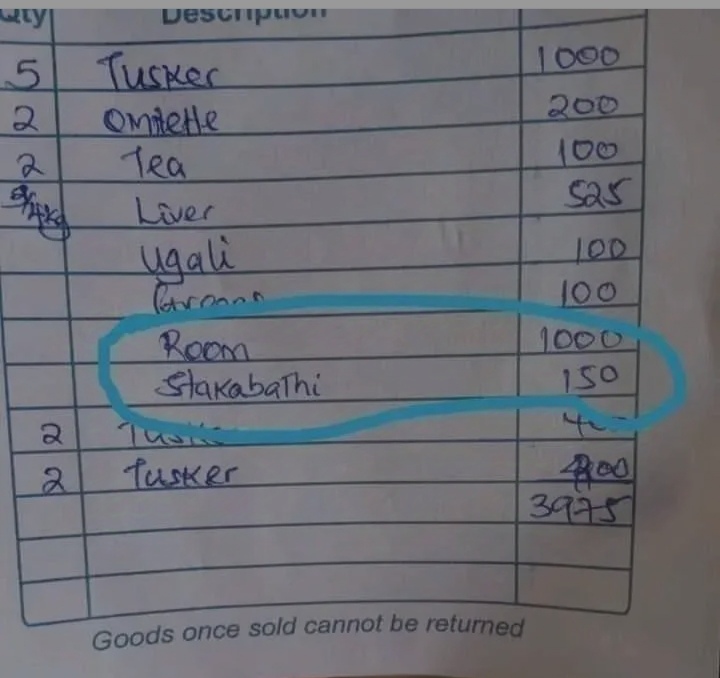 Qty Description
5 Tusker 1000
2 Omilette 200
2 Tea 100
3/4kg Liver 525
Ugali 100
Greens 100
Room 1000
Stakabathi 150
2 Tusker
2 Tusker 400
3975
Goods once sold cannot be returned